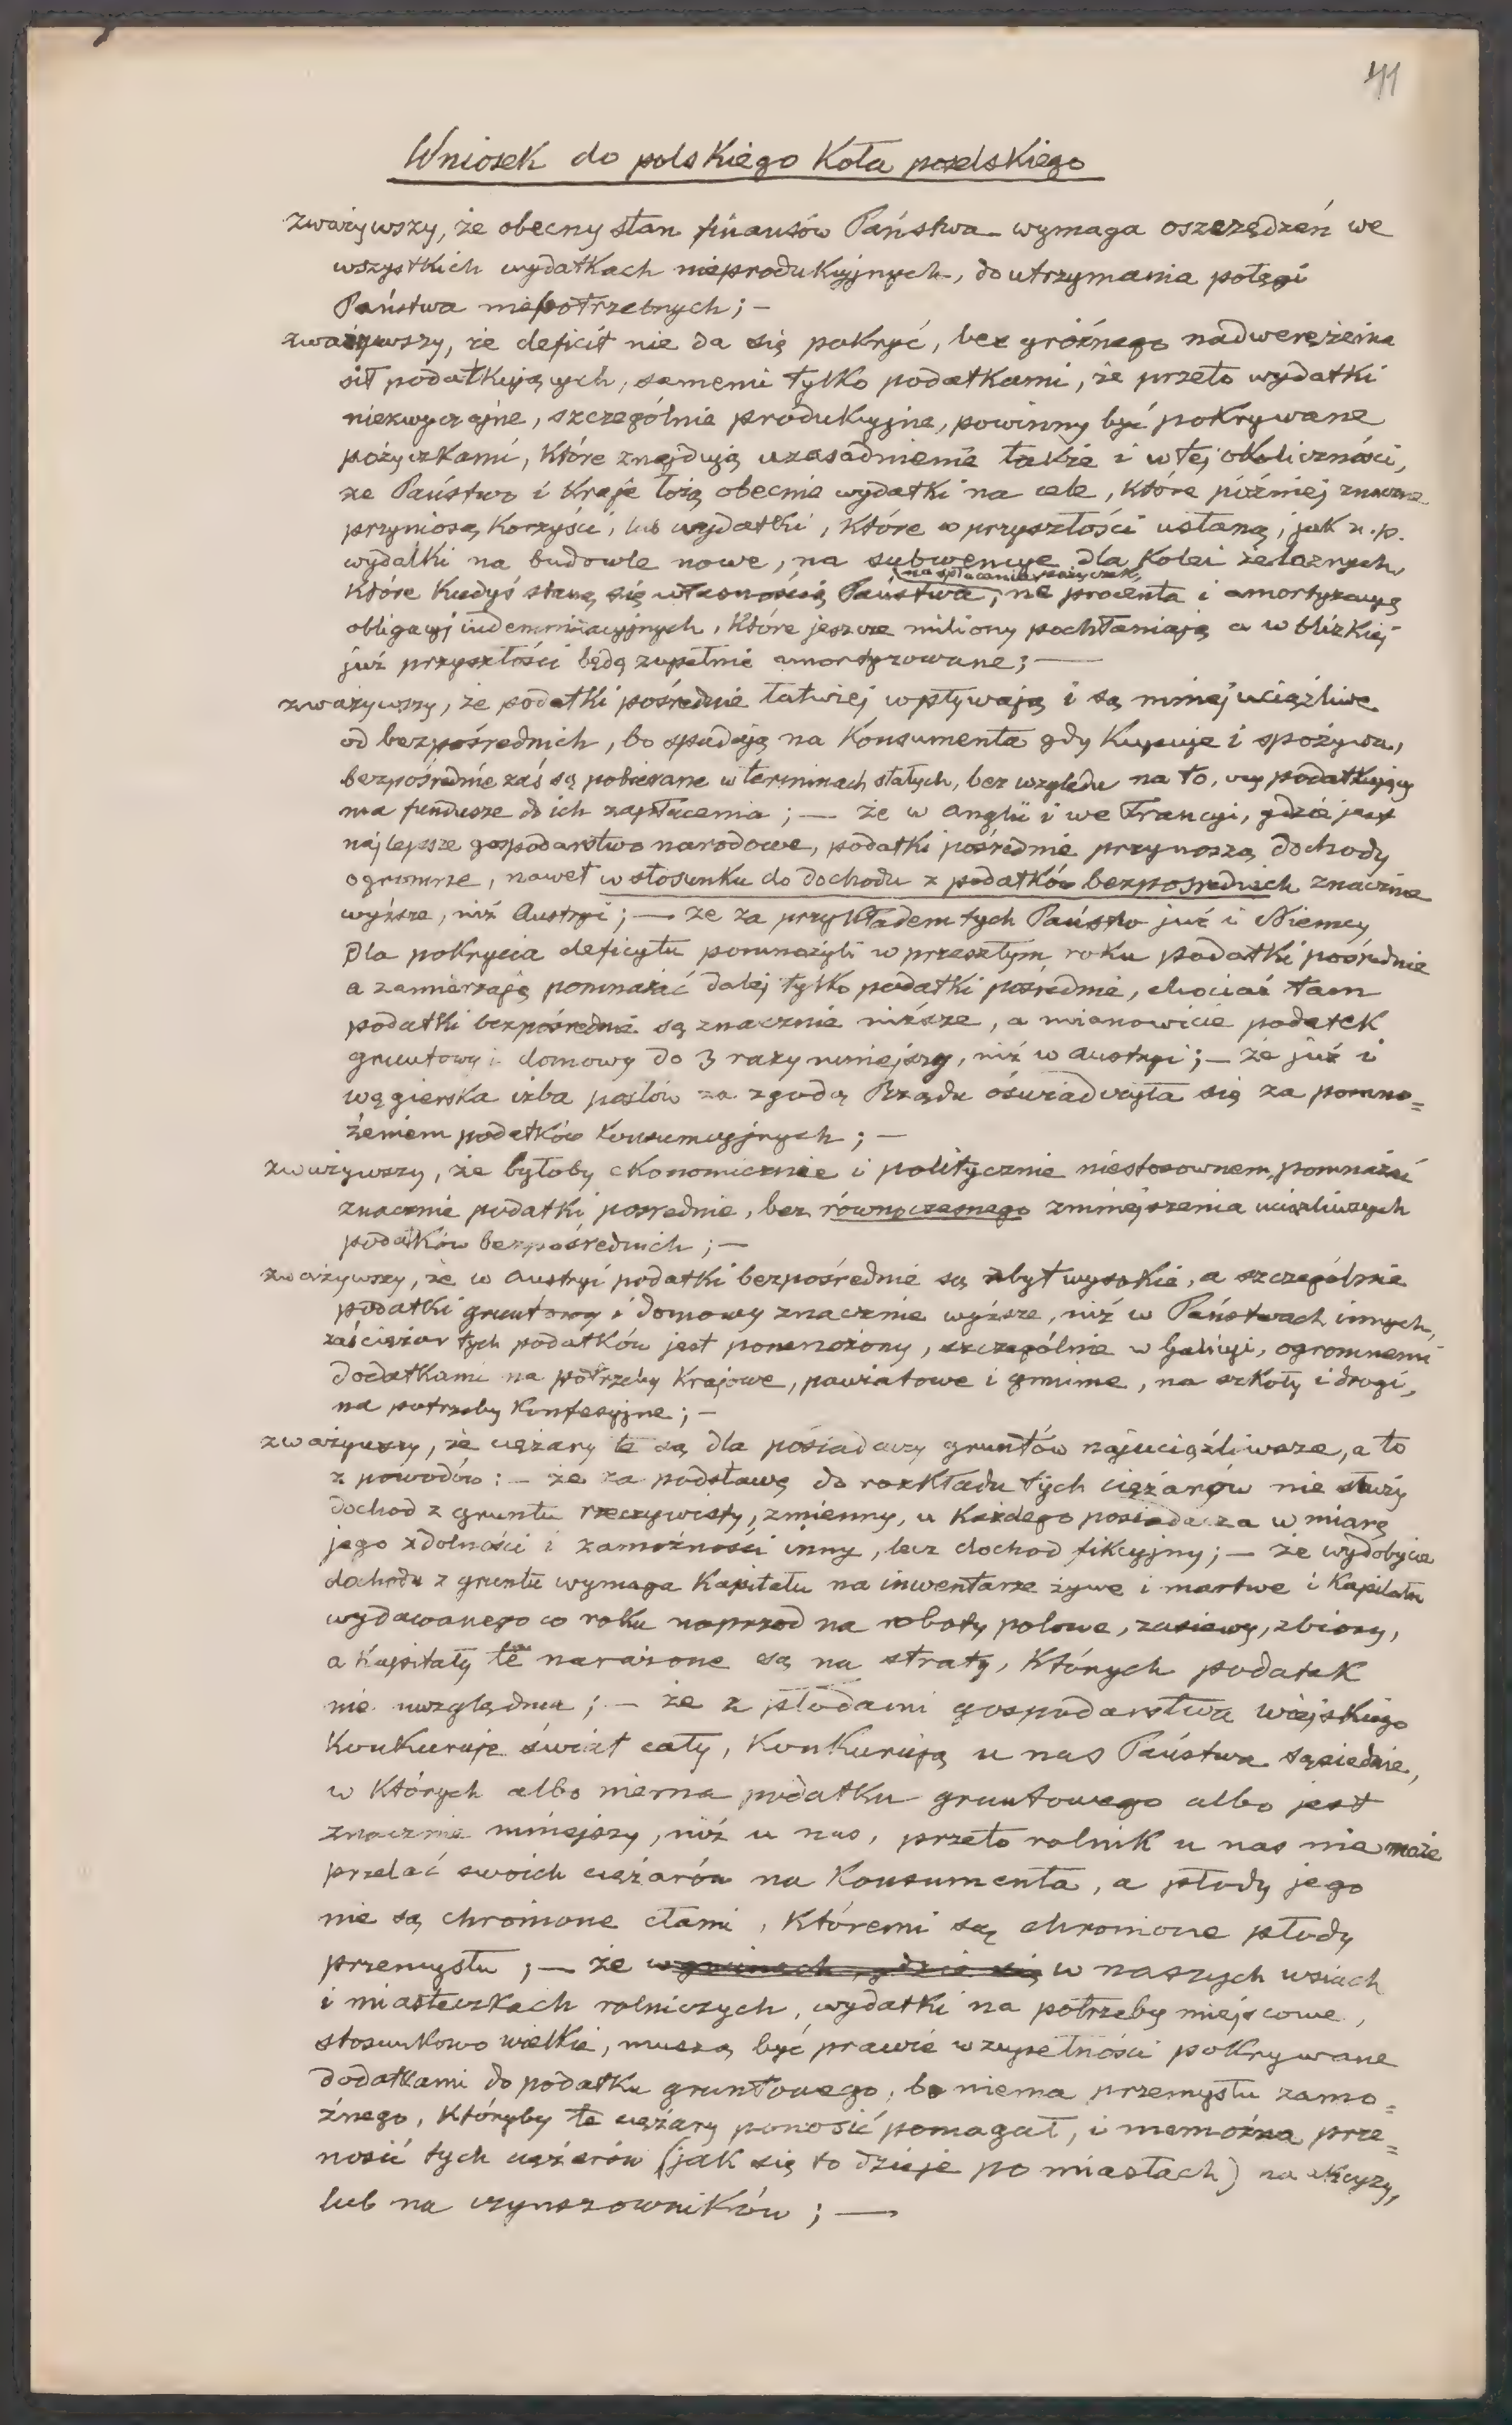 41
Wniosek do polskiego Koła poselskiego
zważywszy, że obecny stan finansów Państwa wymaga oszczędzeń we
wszystkich wydatkach nieprodukcyjnych, do utrzymania potęgi
Państwa niepotrzebnych; —
zważywszy, że deficit nie da się pokryć, bez groźnego nadwerężenia
sił podatkujących, samemi tylko podatkami, że przeto wydatki
niezwyczajne, szczególnie produkcyjne, powinny być pokrywane
pożyczkami, które znajdują uzasadnienie także i w tej okoliczności,
że Państwo i Kraje łożą obecnie wydatki na cele, które później znaczne
przyniosą korzyści, lub wydatki, które w przyszłości ustaną, jak n.p.
wydatki na budowle nowe, na subwencye dla kolei żelaznych,
które kiedyś staną się własnością Państwa, na spłacanie pożyczek, na procenta i amortyzacyą
obligacyj indemnizacyjnych, które jeszcze miliony pochłaniają a w blizkiej
już przyszłości będą zupełnie amortyzowane; —
zważywszy, że podatki pośrednie łatwiej wpływają i są mniej uciążliwe
od bezpośrednich, bo spadają na Konsumenta gdy kupuje i spożywa,
bezpośrednie zaś są pobierane w terminach stałych, bez względu na to, czy podatkujący
ma fundusze do ich zapłacenia; — że w Anglii i we Francyi, gdzie jest
najlepsze gospodarstwo narodowe, podatki pośrednie przynoszą dochody
ogromne, nawet w stosunku do dochodu z podatków bezpośrednich znacznie
wyższe, niż Austryi; — że za przykładem tych Państw już i Niemcy
dla pokrycia deficytu pomnożyli w przeszłym roku podatki pośrednie
a zamierzają pomnażać dalej tylko podatki pośrednie, chociaż tam
podatki bezpośrednie są znacznie niższe, a mianowicie podatek
gruntowy i domowy do 3 razy mniejszy, niż w Austryi; — że już i
węgierska izba posłów za zgodą Rządu oświadczyła się za pomno=
żeniem podatków konsumcyjnych; —
zważywszy, że byłoby ekonomicznie i politycznie niestosownem, pomnażać
znacznie podatki pośrednie, bez równoczesnego zmniejszenia uciążliwych
podatków bezpośrednich; —
zważywszy, że w Austryi podatki bezpośrednie są zbyt wysokie, a szczególnie
podatki gruntowy i domowy znacznie wyższe, niż w Państwach innych,
zaś ciężar tych podatków jest pomnożony, szczególnie w Galicyi, ogromnemi
dodatkami na potrzeby Krajowe, powiatowe i gminne, na szkoły i drogi,
na potrzeby konfesyjne; —
zważywszy, że ciężary te są dla posiadaczy gruntów najuciążliwsze, a to
z powodów: — że za podstawę do rozkładu tych ciężarów nie służy
dochod z gruntu rzeczywisty, zmienny, u każdego posiadacza w miarę
jego zdolności i zamożności inny, lecz dochod fikcyjny; — że wydobycie
dochodu z gruntu wymaga Kapitału na inwentarze żywe i martwe i Kapitału
wydawanego co roku naprzod na roboty polowe, zasiewy, zbiory,
a Kapitały te narażone są na straty, których podatek
nie uwzględnia; — że z płodami gospodarstwa wiejskiego
konkuruje świat cały, konkurują u nas Państwa sąsiednie,
w których albo niema podatku gruntowego albo jest
znacznie mniejszy, niż u nas, przeto rolnik u nas nie może
przelać swoich ciężarów na Konsumenta, a płody jego
nie są chronione cłami, któremi są chronione płody
przemysłu; — że w gminach, gdzie się w naszych wsiach
i miasteczkach rolniczych, wydatki na potrzeby miejscowe,
stosunkowo wielkie, muszą być prawie w zupełności pokrywane
dodatkami do podatku gruntowego, bo niema przemysłu zamo=
żnego, któryby te ciężary ponosić pomagał, i niemożna prze=
nosić tych ciężarów (jak się to dzieje po miastach) na akcyzy,
lub na czynszowników; —